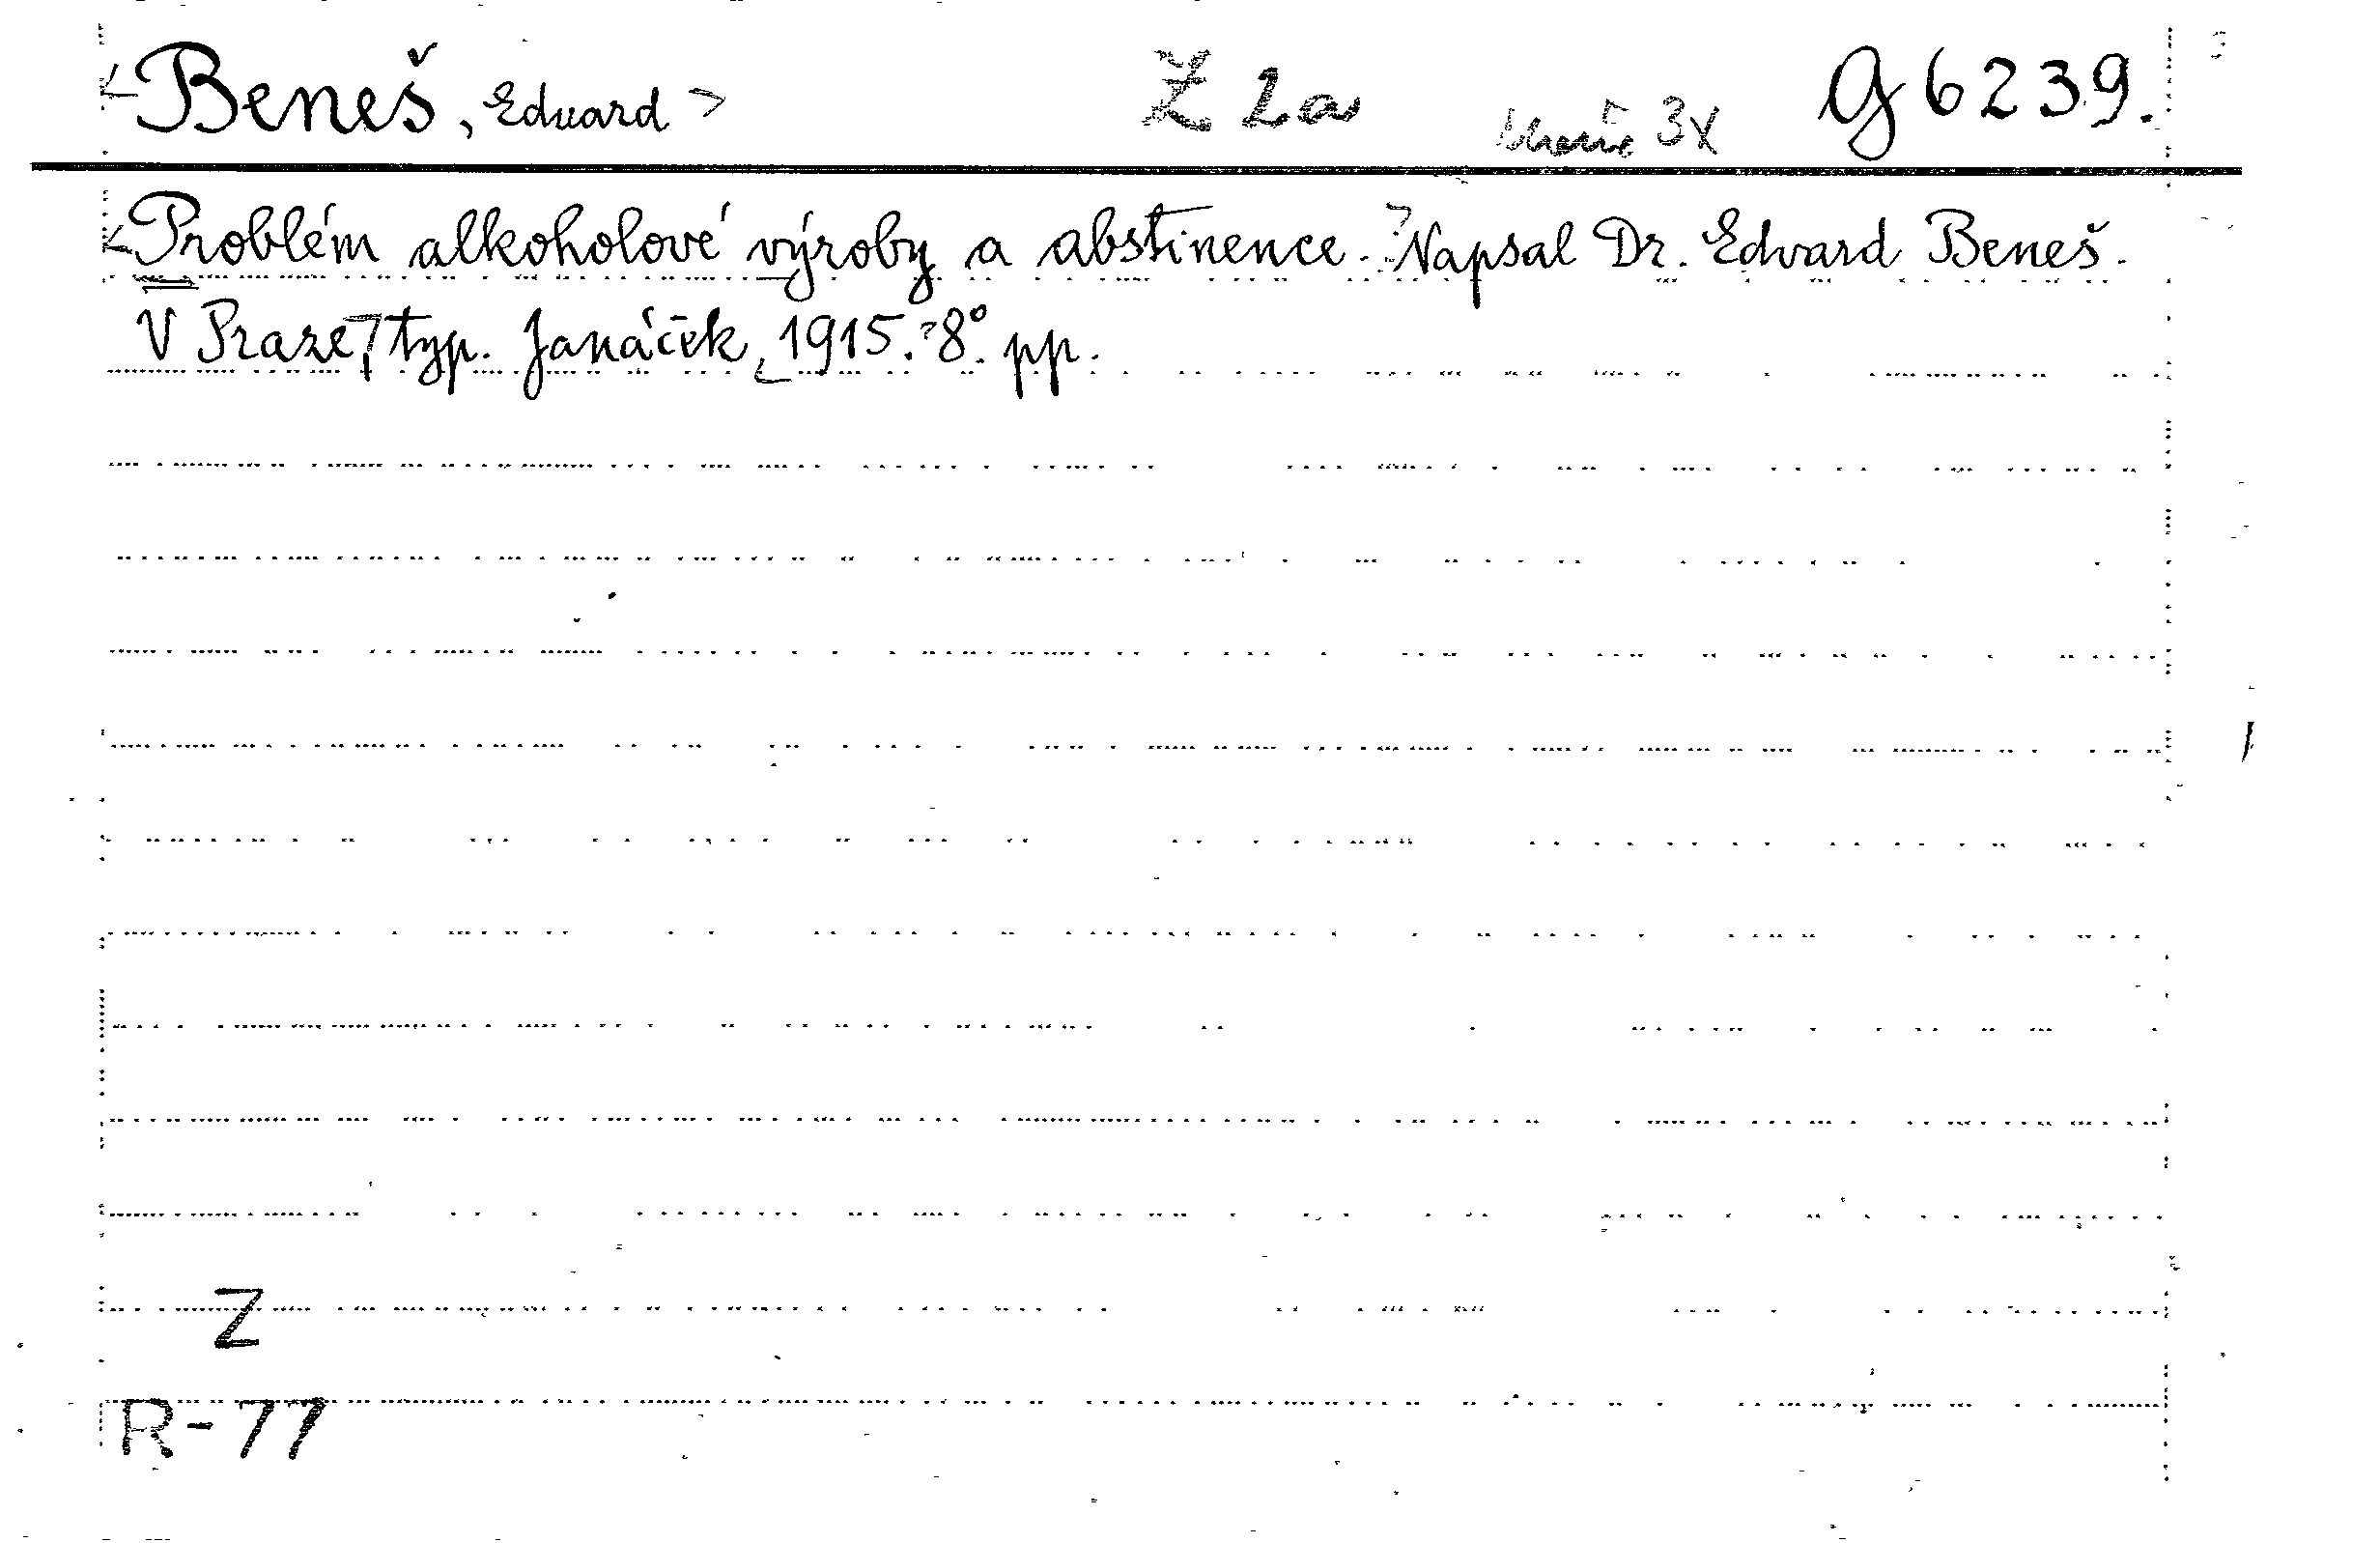 <Beneš, Edvard> Z 2a 3x G 6239.
<Problém alkoholové výroby a abstinence.> Napsal Dr. Edvard Beneš.
V Praze, typ. Janáček, 1915. 8°. pp.
Z
R-77